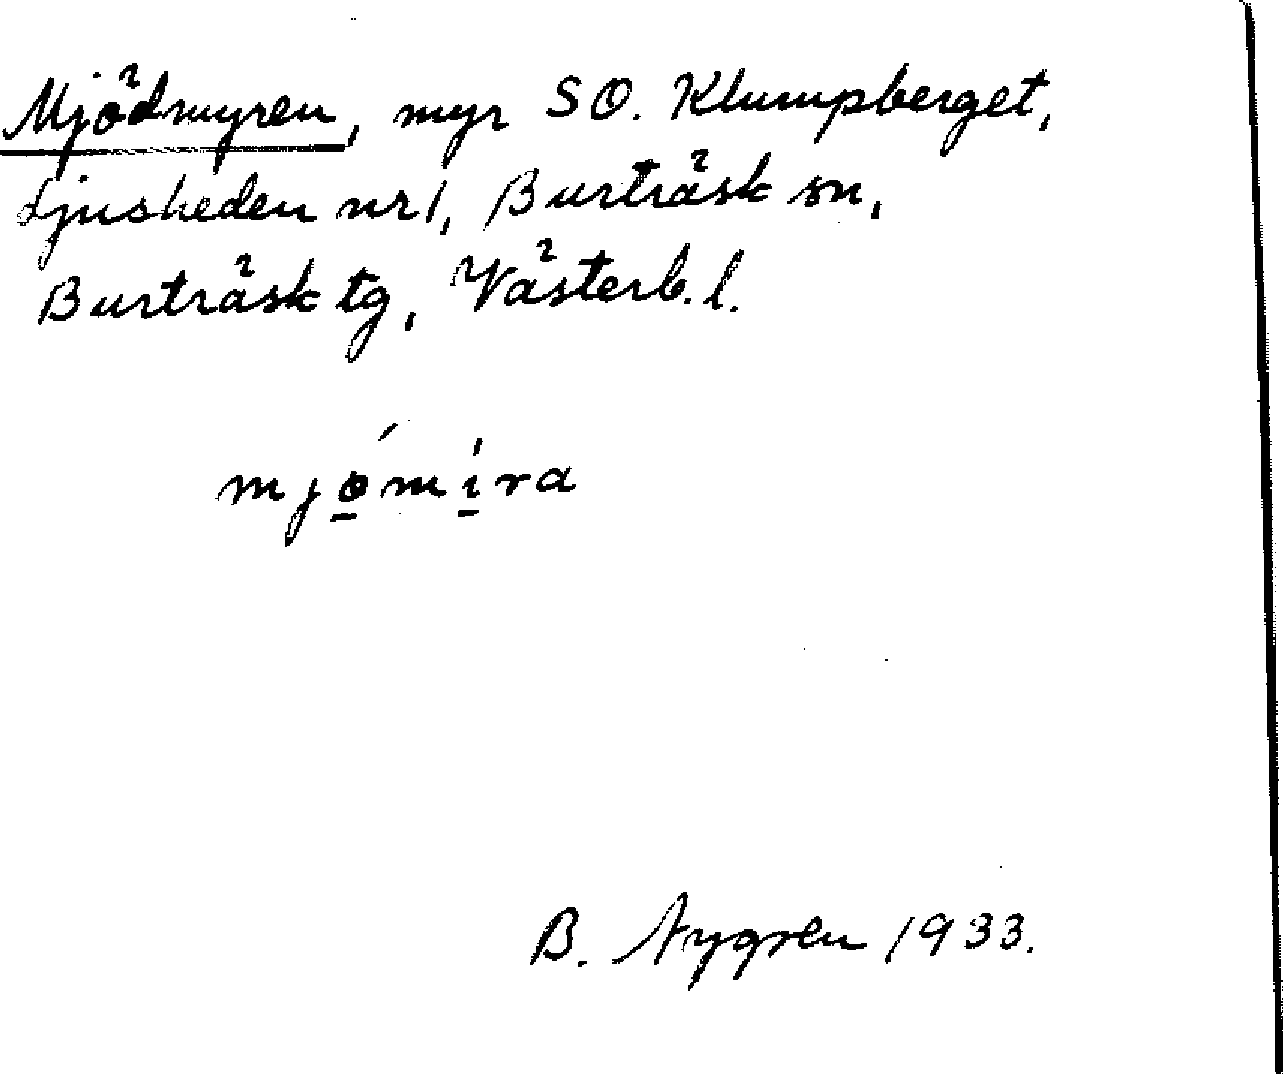 Mjödmyren, myr SO. Klumpberget,
Ljusheden nr 1, Burträsk sn,
Burträsk tg, Västerb. l.
mjo̠´mi̠̍ra
B. Nygren 1933.